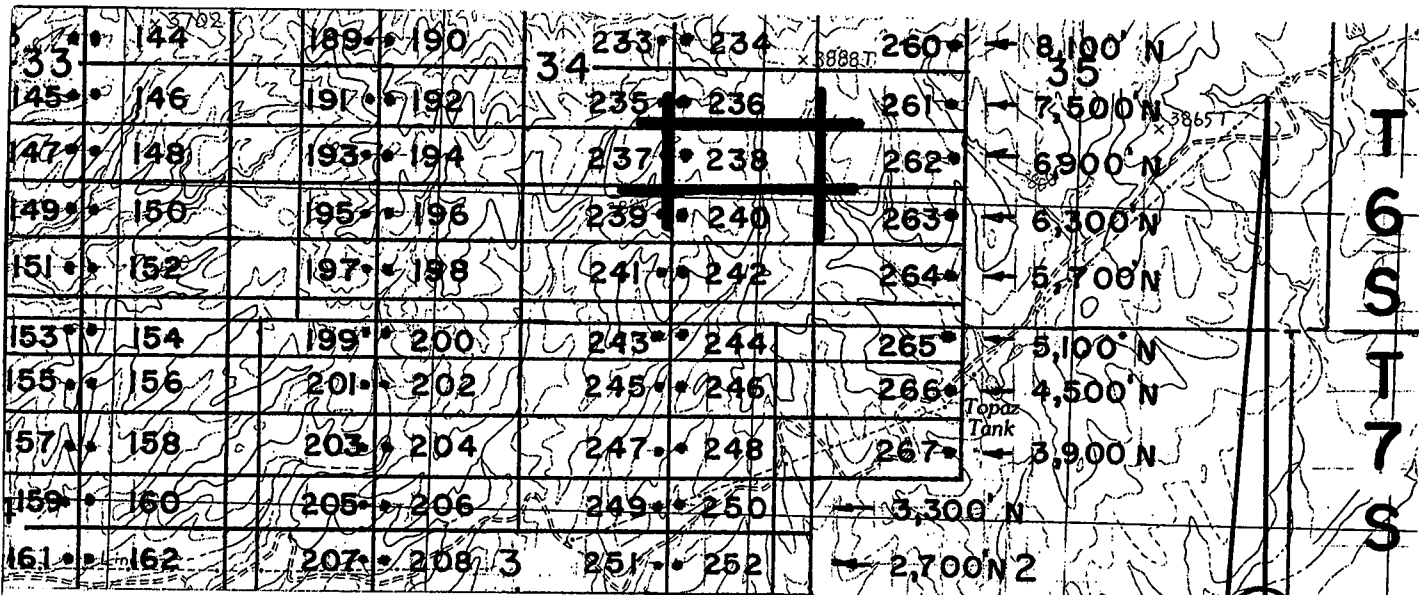 × 3702
144 189 190 233 234 260 8,100' N
33 34 × 3888T 35
145 146 191 192 235 236 261 7,500' N
× 3865T
T
147 148 193 194 237 238 262 6,900' N
149 150 195 196 239 240 263 6,300' N
6
151 152 197 198 241 242 264 5,700' N
S
153 154 199 200 243 244 265 5,100' N
155 156 201 202 245 246 266 4,500' N
T
Topaz
Tank
157 158 203 204 247 248 267 3,900' N
7
159 160 205 206 249 250 3,300' N
S
161 162 207 208 3 251 252 2,700' N 2